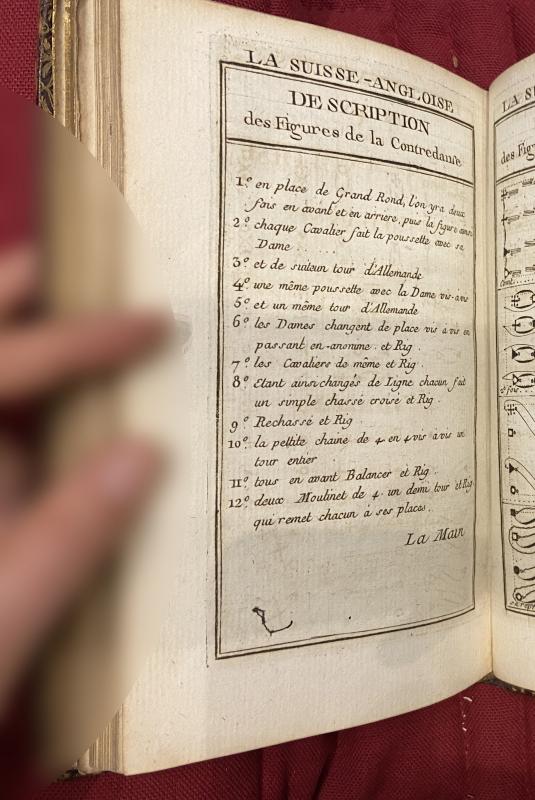 LA SUISSE-ANGLOISE
DESCRIPTION
des Figures de la Contredanse
1.º en place de Grand Rond, l'on yra deux
fois en avant et en arriere, puis la figure ainsi
2.º chaque Cavalier fait la poussette avec sa
Dame
3.º et de suite un tour d'Allemande
4.º une même poussette avec la Dame vis-a-vis
5.º et un même tour d'Allemande
6.º les Dames changent de place vis a vis en
passant en-anonime. et Rig.
7.º les Cavaliers de même et Rig.
8.º Etant ainsi changés de Ligne chacun fait
un simple chassé croisé et Rig.
9.º Rechassé et Rig
10.º la pettite chaine de 4 en 4 vis a vis un
tour entier.
11.º tous en avant Balancer et Rig.
12.º deux Moulinet de 4. un demi tour et Rig.
qui remet chacun à ses places.
La Main
LA SU
des Fig